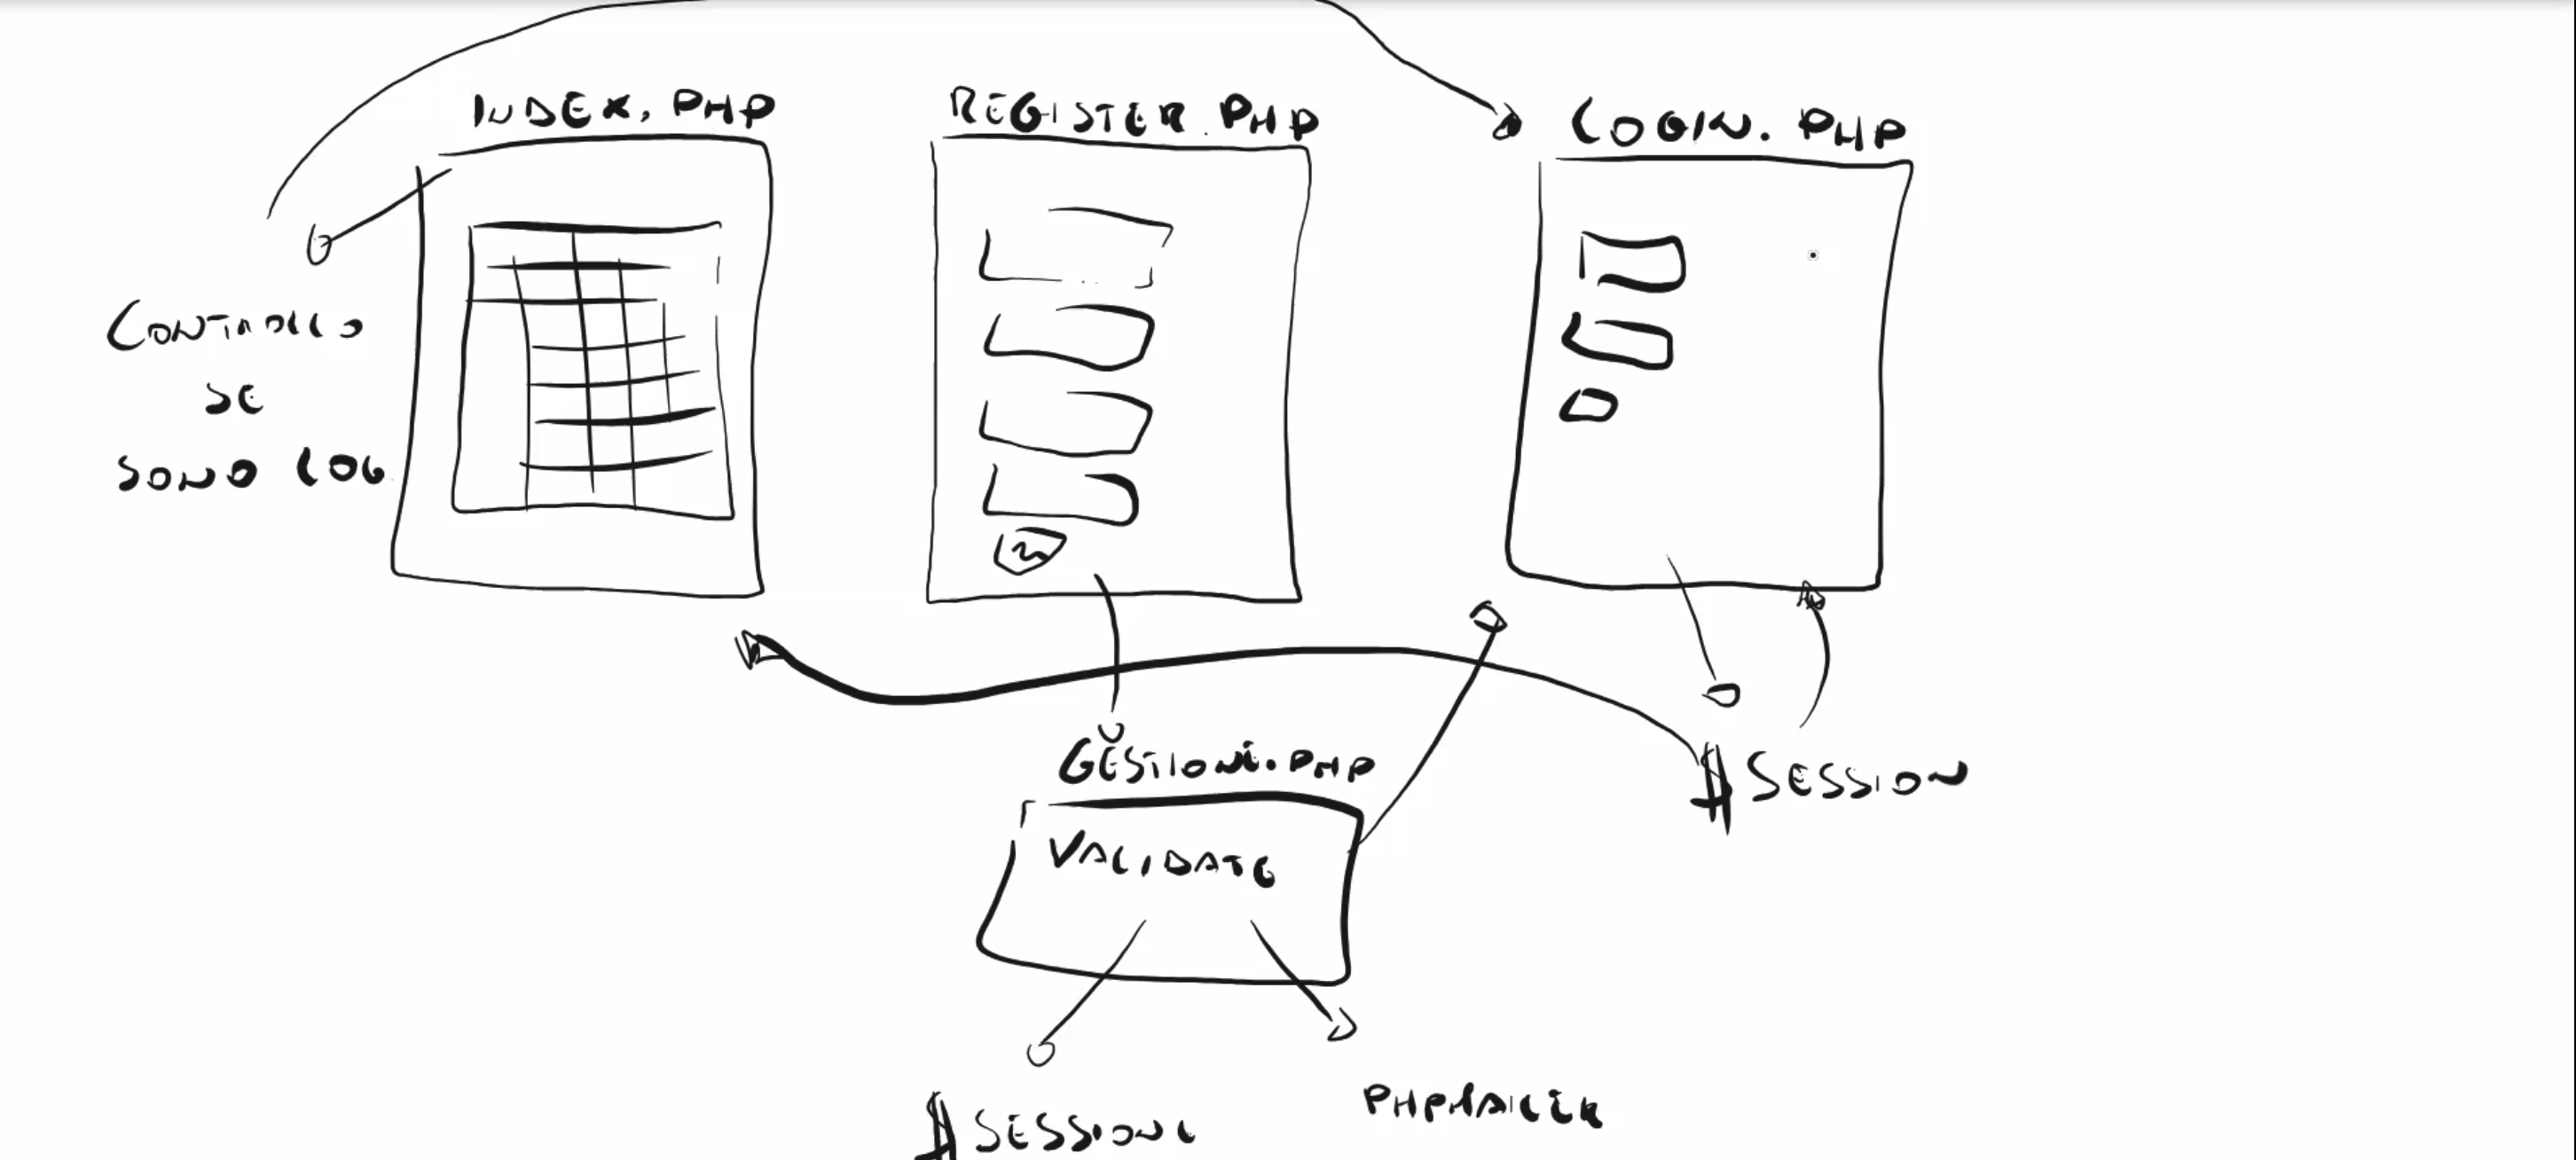 INDEX.PHP
REGISTER.PHP
LOGIN.PHP
CONTROLLO
SE
SONO LOG
GESTIONI.PHP
VALIDATE
$SESSION
$SESSION
PHPMAILER